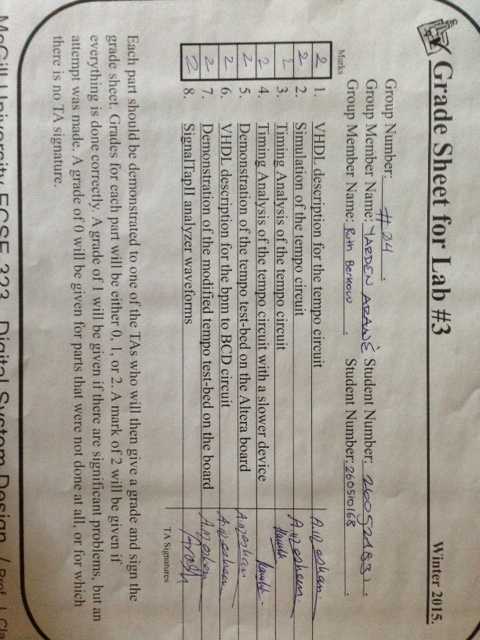 Grade Sheet for Lab #3 Winter 2015.
Group Number: #24.
Group Member Name: YARDEN ARANÉ Student Number:
Group Member Name: Ruth Berkow. Student Number: 260510168.
Marks
2 1. VHDL description for the tempo circuit
2 2. Simulation of the tempo circuit
3. Timing Analysis of the tempo circuit
2 4. Timing Analysis of the tempo circuit with a slower device
2 5. Demonstration of the tempo test-bed on the Altera board
2 6. VHDL description for the bpm to BCD circuit
2 7. Demonstration of the modified tempo test-bed on the board
2 8. SignalTapII analyzer waveforms
TA Signatures
Each part should be demonstrated to one of the TAs who will then give a grade and sign the
grade sheet. Grades for each part will be either 0, 1, or 2. A mark of 2 will be given if
everything is done correctly. A grade of 1 will be given if there are significant problems, but an
attempt was made. A grade of 0 will be given for parts that were not done at all, or for which
there is no TA signature.
McGill University ECSE-323 Digital System Design / Prof. J. Cla